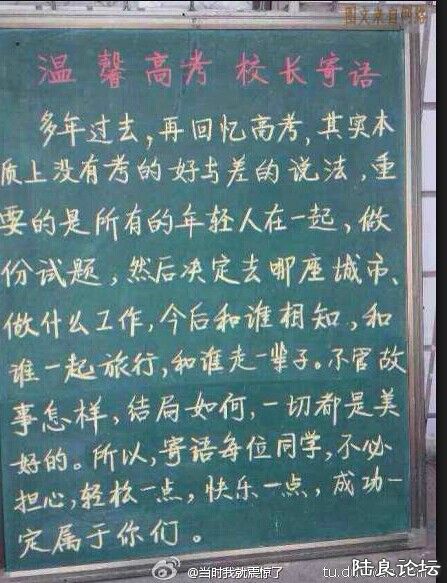 图文来自网络
温馨高考 校长寄语
多年过去，再回忆高考，其实本
质上没有考的好与差的说法，重
要的是所有的年轻人在一起，做
份试题，然后决定去哪座城市、
做什么工作，今后和谁相知，和
谁一起旅行，和谁走一辈子。不管故
事怎样，结局如何，一切都是美
好的。所以，寄语每位同学，不必
担心，轻松一点，快乐一点，成功一
定属于你们。
@当时我就震惊了
陆良论坛